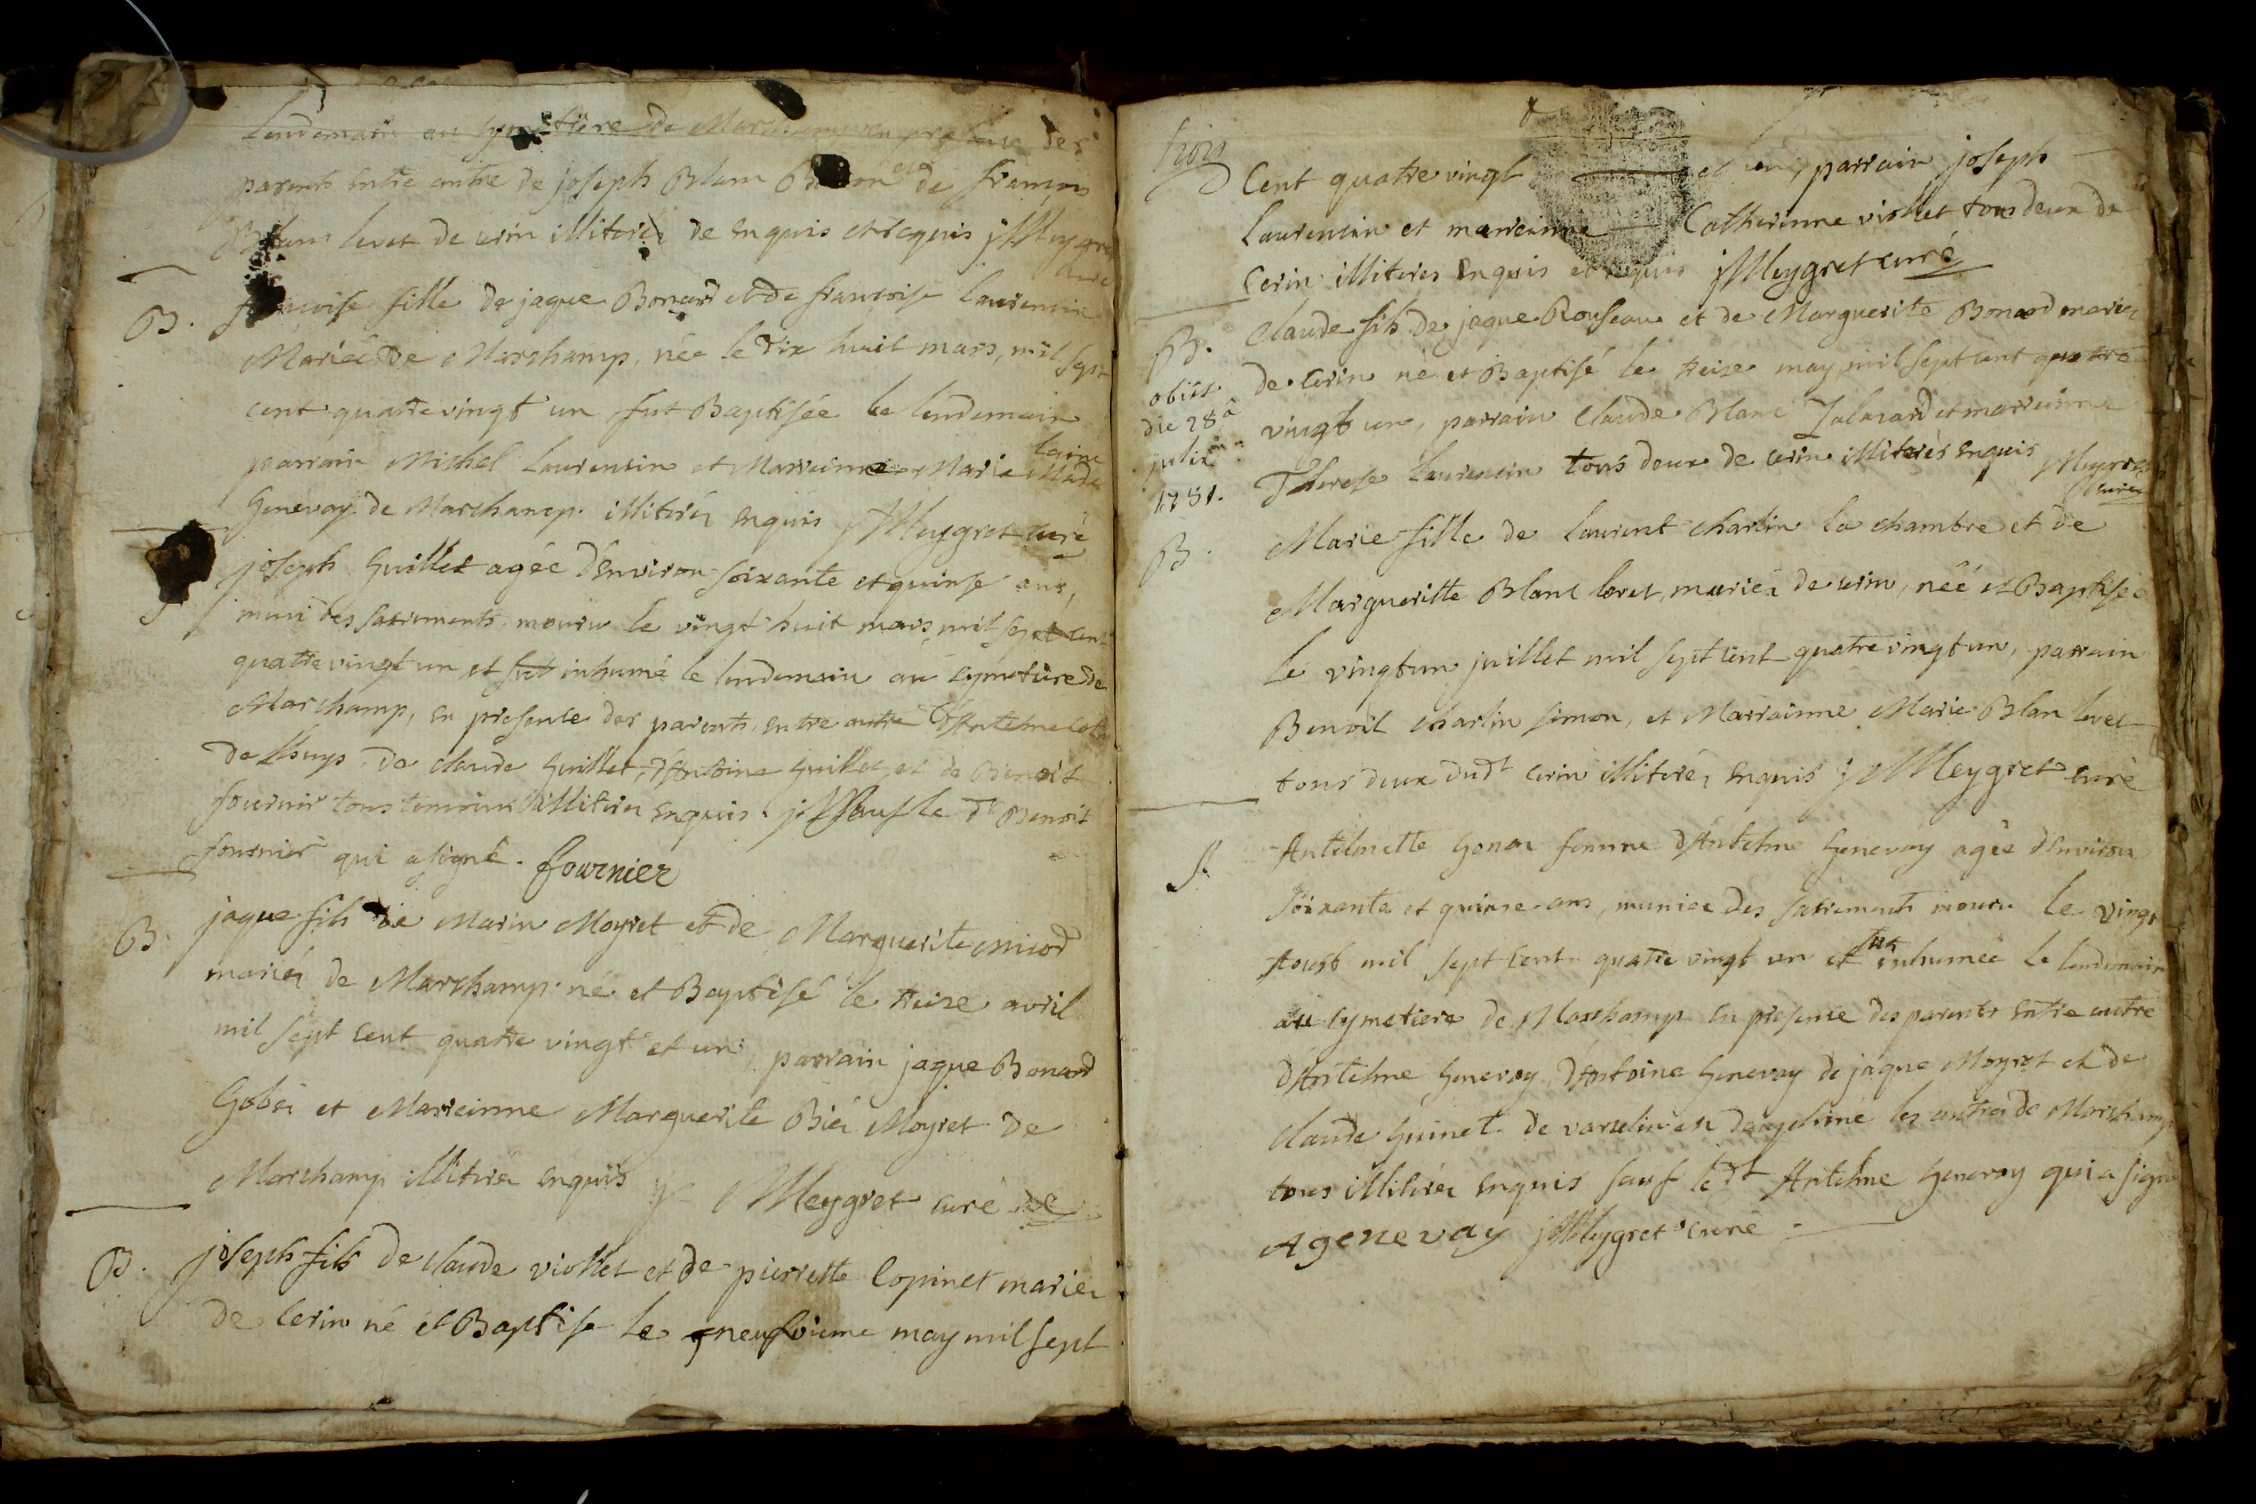 lendemain au cymetiere de Marchamp en presence des
parents entre autre de joseph Blanc et de françois
Blanc levet de cerin illiterés de enquis et requis j Meygret
curé
B. françoise fille de jaque Bonard et de françoise laurencin
Mariés de Marchamp, née le dix huit mars, mil sept
cent quatre vingt un fut Baptisée le lendemain
parrain Michel Laurencin et Marreinne Marie Made
laine
Genevay de Marchamp. illiterés enquis j Meygret curé
S joseph Guillet agée d'Environ soixante et quinse ans,
muni des sacrements mouru le vingt huit mars mil sept cent
quatre vingt un et fut inhumé le lendemain au cymetiere de
Marchamp, en presence des parents, entre autre d'Antelme
de lhuys de claude Guillet, d'Antoine Guillet, et de Benoit
fournier tous temoins illiterés enquis. sauf le dt Benoit
fournier qui a signé. fournier
B. jaque fils de Marin Moyret et de Marguerite miod
mariés de Marchamp né et Baptisé le treize avril
mil sept cent quatre vingt et un, parrain jaque Bonard
Gobet et Marreinne Marguerite Moyret de
Marchamp illiterés enquis j Meygret curé
B. joseph fils de claude viollet et de pierrette Copinet mariés
de Cerin né et Baptisé le neufvieme may mil sept
trois
Cent quatre vingt et un, parrain joseph
Laurencin et marreinne Catherinne viollet tous deux de
Cerin illiterés Enquis et requis j Meygret curé
B. Claude fils de jaque Rouseau et de Marguerite Bonard mariés
obiit de Cerin né et Baptisé le treize may, mil sept cent quatre
die 28a vingt un, parrain Claude Blanc et marreinne
julii Therese Laurencin tous deux de cerin illiterés enquis j Meygret
1781. curé
B. Marie fille de laurent charlin la chambre et de
Margueritte Blanc loret, mariés de cerin, née et Baptisée
le vingtun juillet mil sept cent quatre vingt un, parrain
Benoit charlin simon, et Marrainne Marie Blan levet
tous deux dudt cerin illiterés, enquis j Meygret curé
S. Antelmette Gonon femme d'Antelme Genevay agée d'Environ
soixante et quinse ans, munice des sacrements mouru le vingt
Aoust mil sept cent quatre vingt un et fut inhumée le lendemain
au cymetiere de Marchamp en presence des parents entre autre
d'Antelme Genevay, d'Antoine Genevay de jaque Moyret et de
claude Guinet de varselin en dauphiné les autres de Marchamp
tous illiterés enquis sauf le dt Antelme Genevay qui a signé
A genevay j Meygret curé